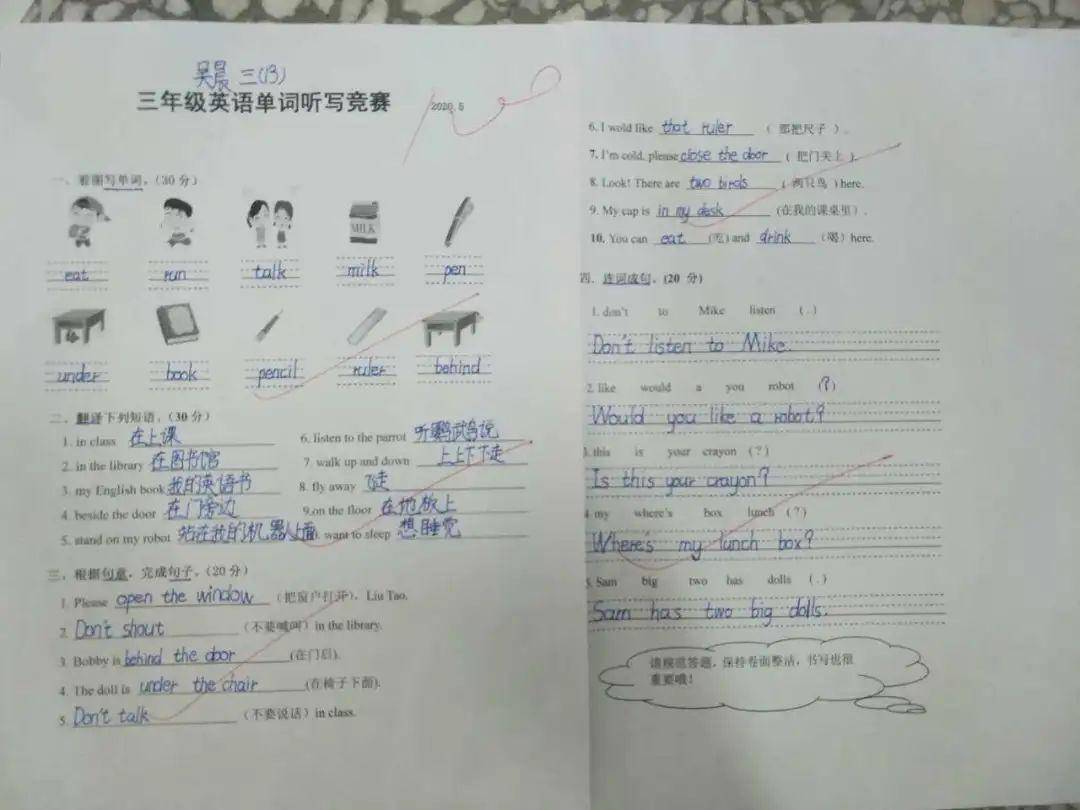 吴晨 三(13)
三年级英语单词听写竞赛 2020.5
一、看图写单词。(30分)
MILK
eat run talk milk pen
under book pencil ruler behind
二、翻译下列短语。(30分)
1. in class 在上课
2. in the library 在图书馆
3. my English book 我的英语书
4. beside the door 在门旁边
5. stand on my robot 站在我的机器人上面
6. listen to the parrot 听鹦鹉说
7. walk up and down 上上下下走
8. fly away 飞走
9.on the floor 在地板上
want to sleep 想睡觉
三、根据句意，完成句子。(20分)
1. Please open the window (把窗户打开), Liu Tao.
2. Don't shout (不要喊叫) in the library.
3. Bobby is behind the door (在门后).
4. The doll is under the chair (在椅子下面).
5. Don't talk (不要说话) in class.
6. I wold like that ruler (那把尺子).
7. I'm cold, please close the door (把门关上).
8. Look! There are two birds (两只鸟) here.
9. My cap is in my desk (在我的课桌里).
10. You can eat (吃) and drink (喝) here.
四、连词成句。(20 分)
1. don't to Mike listen (.)
Don't listen to Mike.
2. like would a you robot (?)
Would you like a robot?
3. this is your crayon (?)
Is this your crayon?
4 my where's box lunch (?)
Where's my lunch box?
5. Sam big two has dolls (.)
Sam has two big dolls.
请规范答题，保持卷面整洁，书写也很
重要哦！